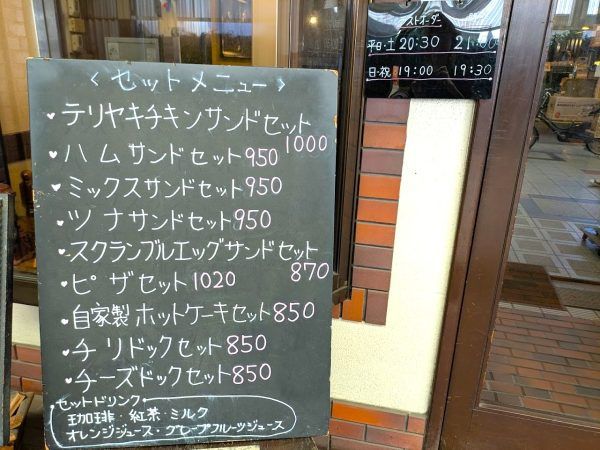 ＜セットメニュー＞
テリヤキチキンサンドセット
1000
ハムサンドセット 950
ミックスサンドセット 950
ツナサンドセット 950
スクランブルエッグサンドセット
870
ピザセット 1020
自家製ホットケーキセット 850
チリドックセット 850
チーズドックセット 850
セットドリンク
珈琲・紅茶・ミルク
オレンジジュース・グレープフルーツジュース
ストオーダー
平日・土 20:30 21:00
日・祝 19:00 ～ 19:30